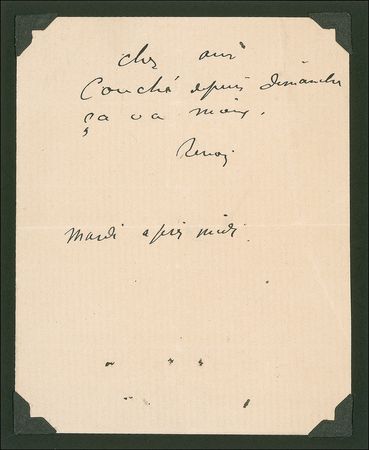 Cher ami
Couché depuis dimanche
ça va mieux.
Renoir
Mardi après midi.